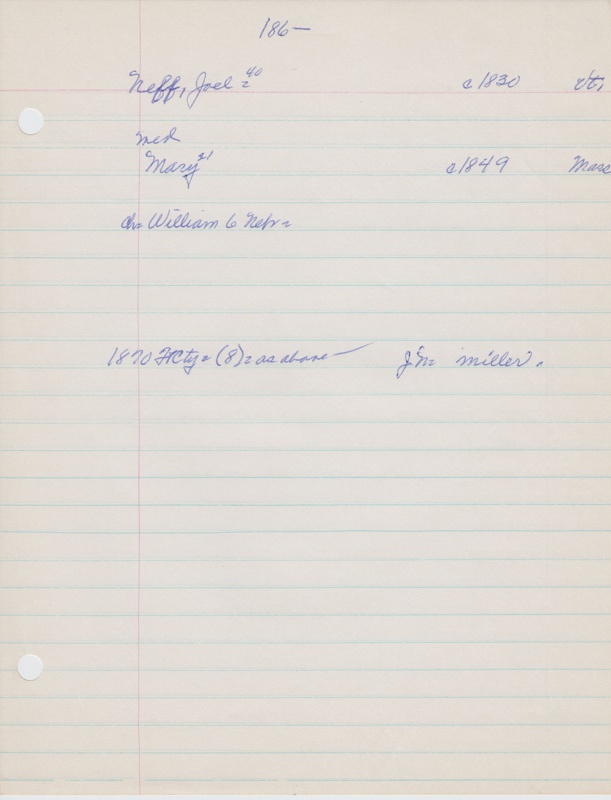 186-
Neff, Joel = 40 c1830 Vt,
med
Mary 21 c1849 Mass
ch= William 6 Nebr=
1870 Cty= (8)= as above- miller.